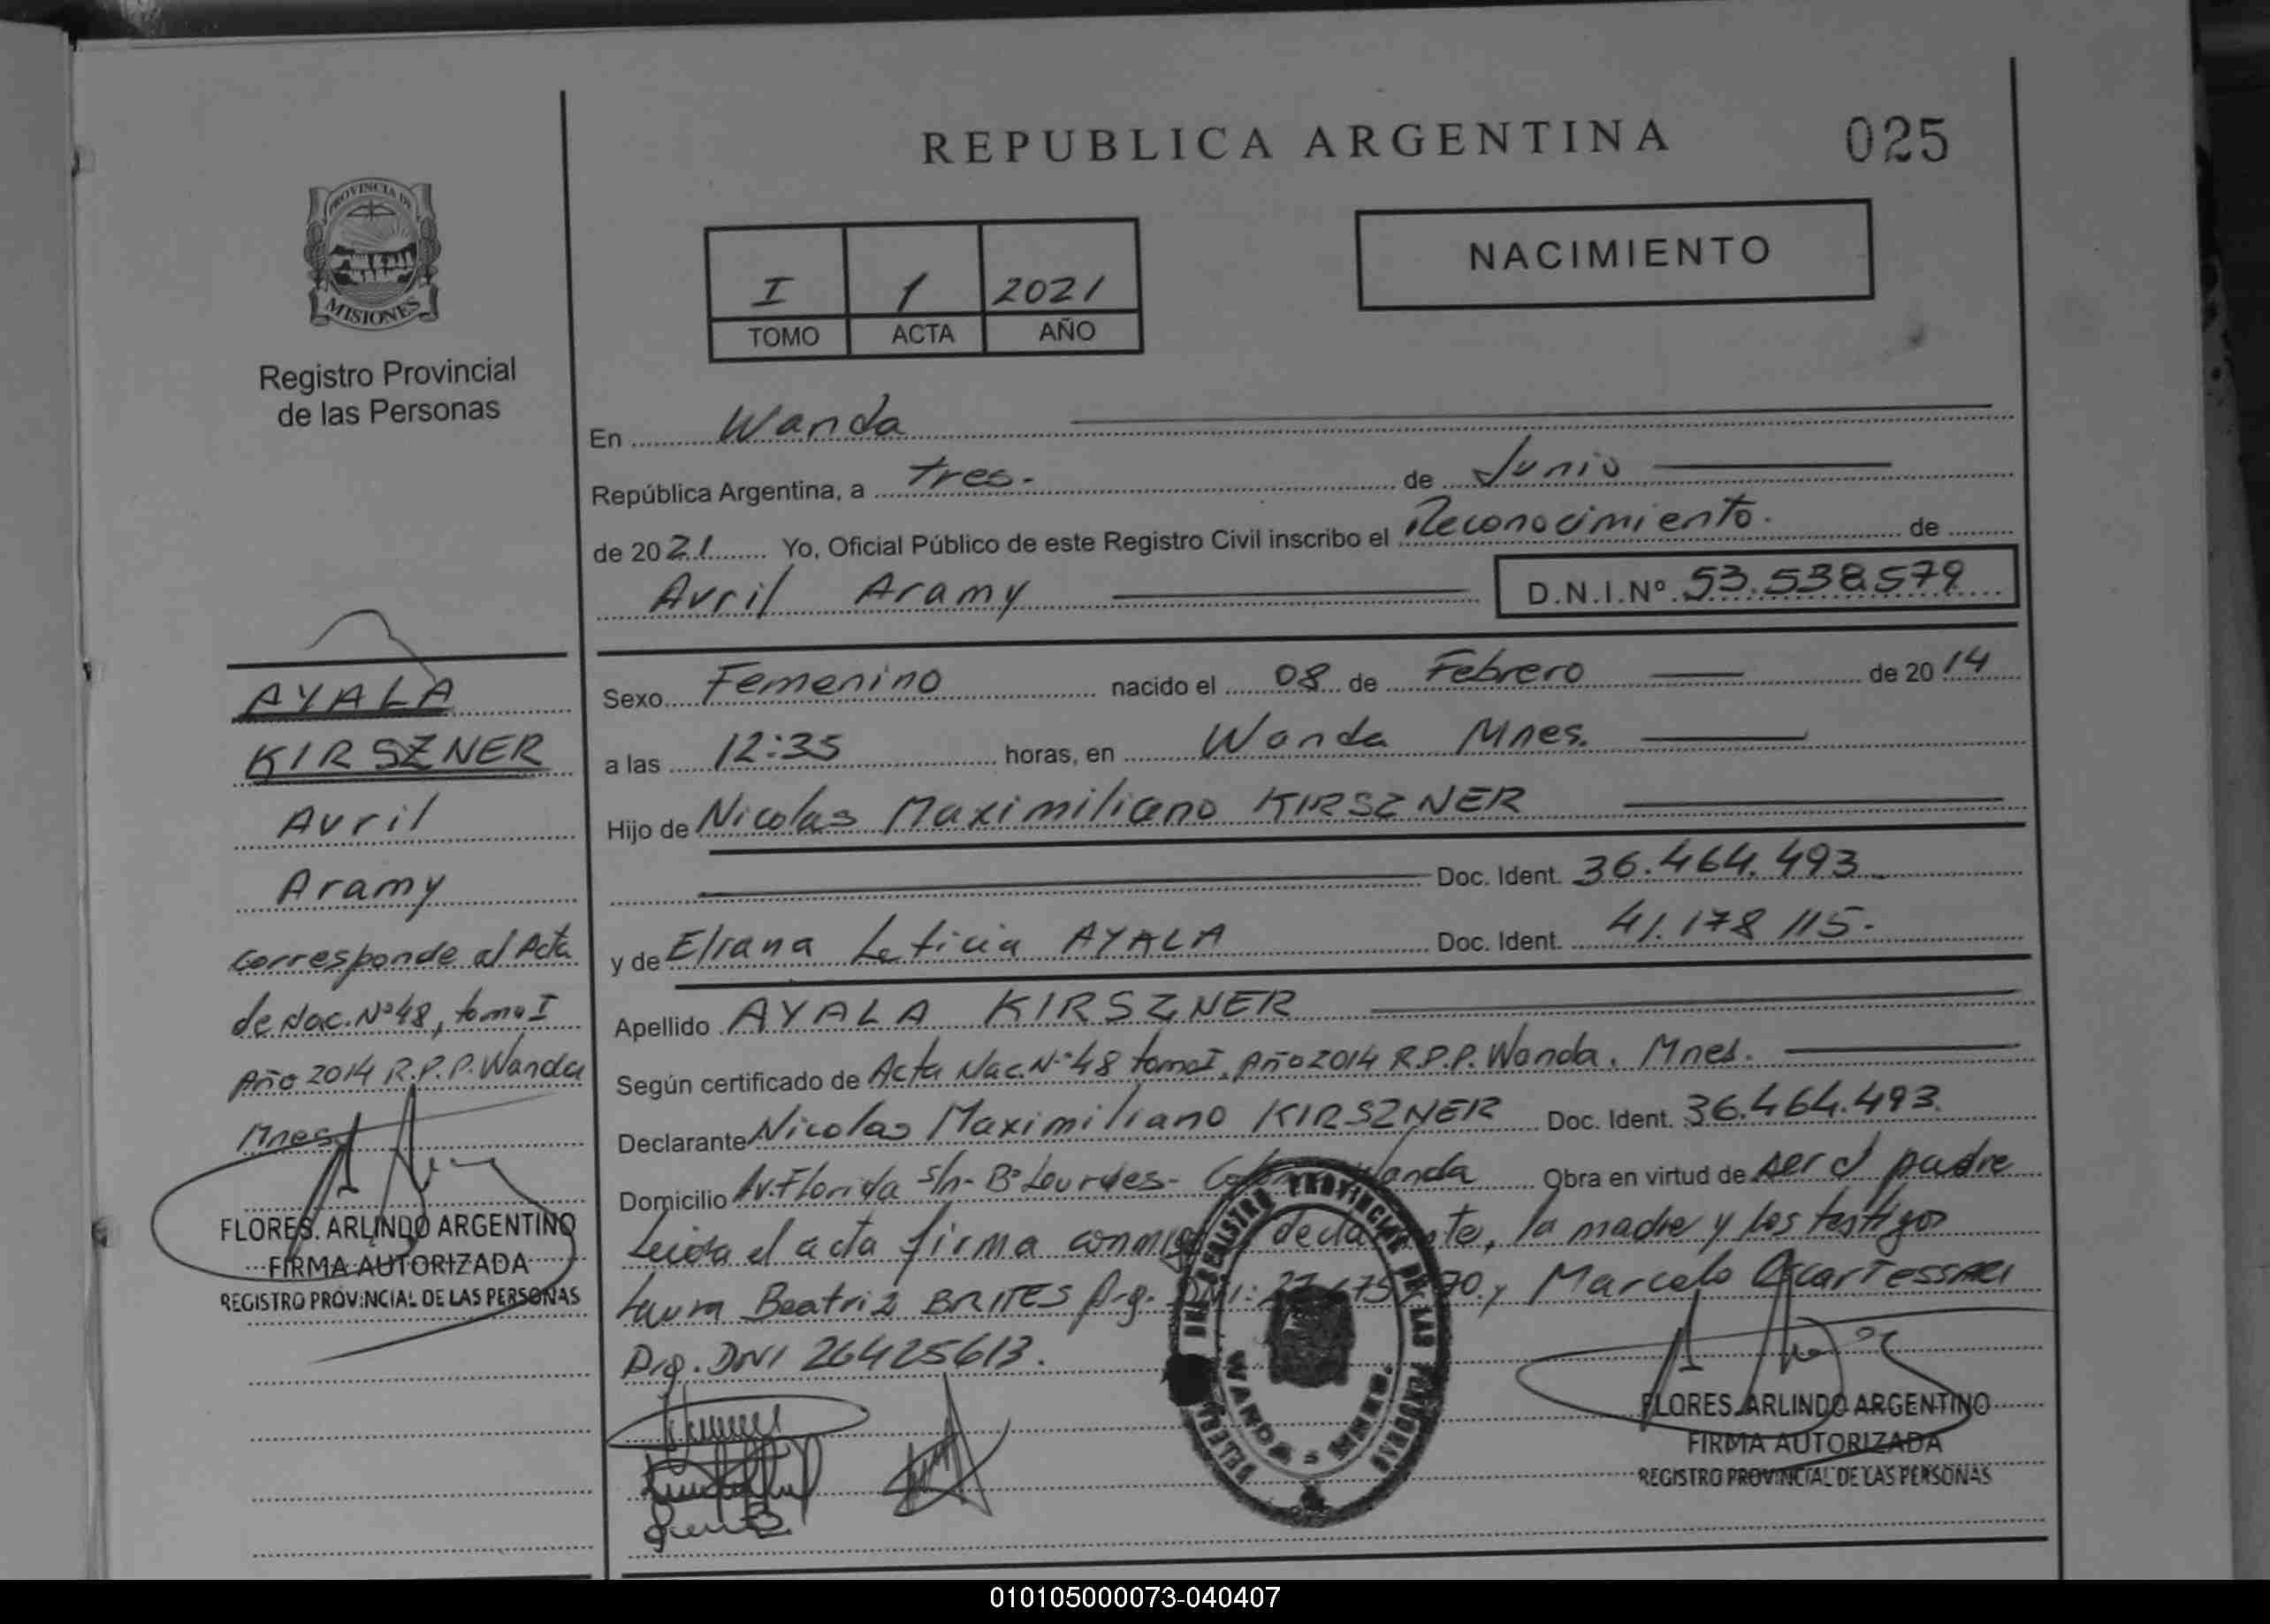 REPUBLICA ARGENTINA
025
PROVINCIA DE
MISIONES
Registro Provincial
de las Personas
NACIMIENTO
I 1 2021
TOMO ACTA AÑO
En Wanda
República Argentina, a tres. de Junio
de 2021 Yo, Oficial Público de este Registro Civil inscribo el Reconocimiento. de
Avril Aramy D.N.I.Nº 53.538.579
Sexo Femenino nacido el 08 de Febrero de 2014
a las 12:35 horas, en Wanda Mnes.
Hijo de Nicolas Maximiliano KIRSZNER
Doc. Ident. 36.464.493
y de Eliana Leticia AYALA Doc. Ident. 41.178 115.
Apellido AYALA KIRSZNER
Según certificado de Acta Nac. Nº 48 tomo I, Año 2014 R.P.P. Wanda. Mnes.
Declarante Nicolas Maximiliano KIRSZNER Doc. Ident. 36.464.493.
Domicilio Av. Florida s/n - Bº Lourdes - Wanda Obra en virtud de ser el padre
Leida el acta firma conmigo declarante, la madre y los testigos
Laura Beatriz BRITES Arg. DNI: y Marcelo Oscar TESSARI
Arg. DNI 26425613.
AYALA
KIRSZNER
Avril
Aramy
Corresponde al Acta
de Nac. Nº 48, tomo I
Año 2014 R.P.P. Wanda
Mnes.
FLORES. ARLINDO ARGENTINO
FIRMA AUTORIZADA
REGISTRO PROVINCIAL DE LAS PERSONAS
REGISTRO PROVINCIAL DE LAS PERSONAS
WANDA - MNES.
FLORES. ARLINDO ARGENTINO
FIRMA AUTORIZADA
REGISTRO PROVINCIAL DE LAS PERSONAS
010105000073-040407